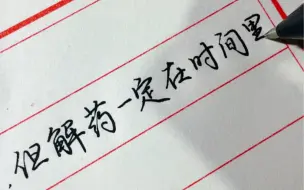 但解药一定在时间里